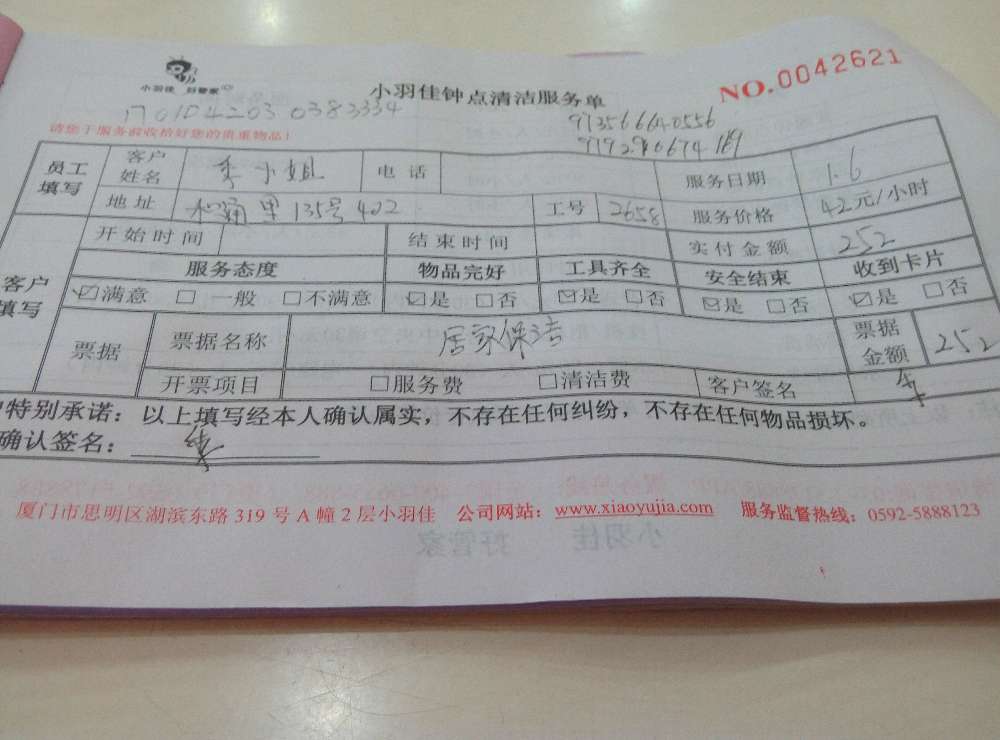 小羽佳 好管家
小羽佳钟点清洁服务单
NO.0042621
请您于服务前收拾好您的贵重物品!
员工填写 客户姓名 季小姐 电话 服务日期 1.6
地址 135号402 工号 2658 服务价格 42元/小时
开始时间 结束时间 实付金额 252
客户填写 服务态度 物品完好 工具齐全 安全结束 收到卡片
☑满意 □一般 □不满意 ☑是 □否 ☑是 □否 ☑是 □否 ☑是 □否
票据 票据名称 居家保洁 票据金额 252
开票项目 □服务费 □清洁费 客户签名
特别承诺:以上填写经本人确认属实,不存在任何纠纷,不存在任何物品损坏。
确认签名:
厦门市思明区湖滨东路 319 号 A 幢 2 层小羽佳 公司网站:www.xiaoyujia.com 服务监督热线:0592-5888123